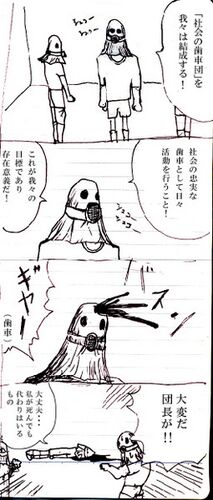 「社会の歯車団」を
我々は結成する！
シュコー
シュコー
社会の忠実な
歯車として日々
活動を行うこと！
これが我々の
目標であり
存在意義だ！
シュコー
シュコー
バスン
ギャー！
（歯車）
大変だ
団長が！！
大丈夫・・
私が死んでも
代わりはいる
もの